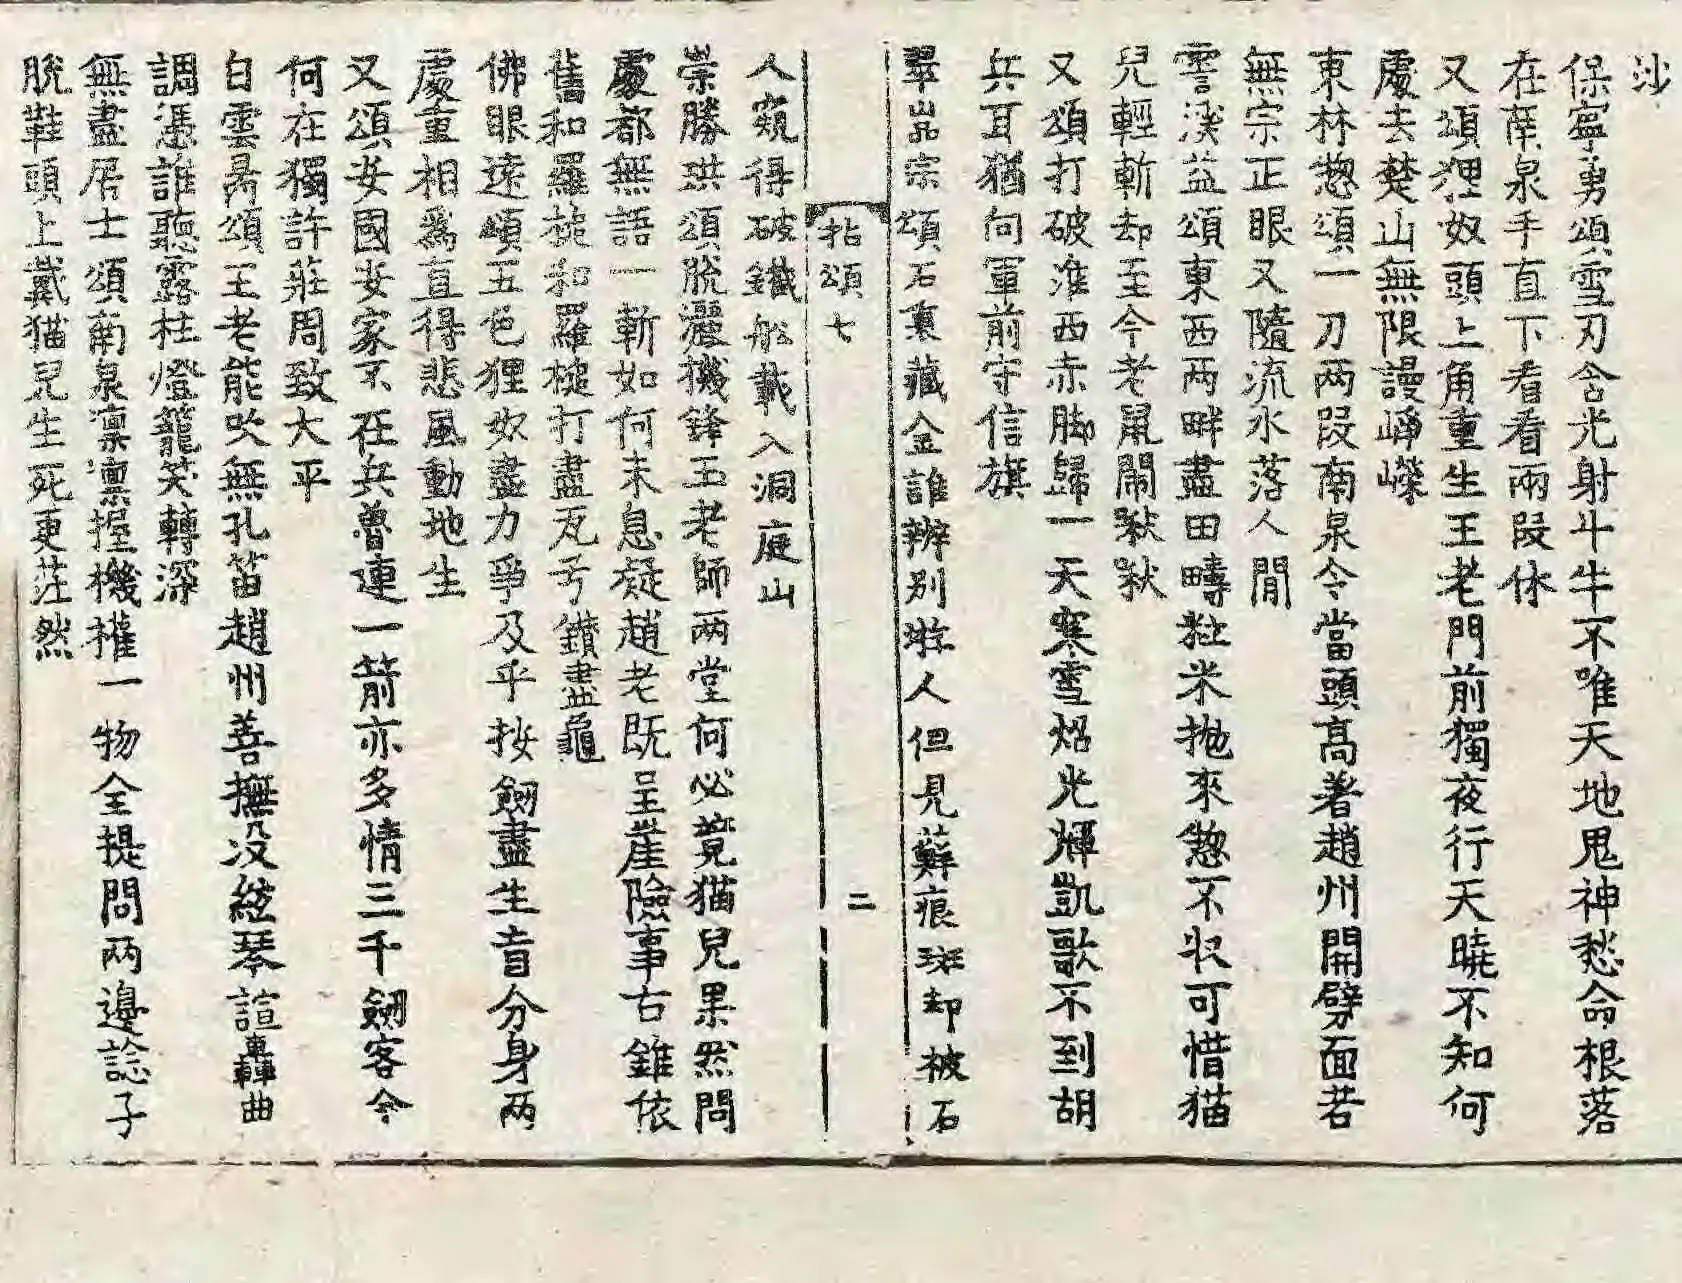 沙
保寧勇頌雪刃含光射斗牛不唯天地鬼神愁命根落
在南泉手直下看看兩段休
又頌狸奴頭上角重生王老門前獨夜行天曉不知何
處去楚山無限謾崢嶸
東林惣頌一刀两段南泉令當頭高著趙州開劈面若
無宗正眼又隨流水落人間
霅溪益頌東西两畔盡田疇粃米拋來惣不收可惜猫
兒輕斬却至今老鼠鬧啾啾
又頌打破淮西赤脚歸一天寒雪炤光輝凱歌不到胡
兵耳猶向軍前守信旗
翠嵓宗頌石裏藏金誰辨別遊人但見蘚痕斑却被石
拈頌七
二
人窺得破鐵船載入洞庭山
崇勝珙頌脫灑機鋒王老師两堂何必競猫兒果然問
處都無語一斬如何末息疑趙老既呈崖險事古錐依
舊和羅槌和羅槌打盡瓦兮鑽盡龜
佛眼遠頌五色狸奴盡力爭及乎按劔盡生盲分身两
處重相爲直得悲風動地生
又頌安國安家不在兵魯連一箭亦多情三千劔客今
何在獨許莊周致大平
白雲昺頌王老能吹無孔笛趙州善撫没絃琴諠轟曲
調憑誰聽露柱燈籠笑轉深
無盡居士頌南泉凛凛握機權一物全提問两邊諗子
脫鞋頭上戴猫兒生死更茫然